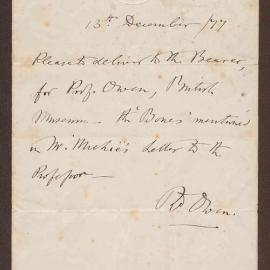 13th December /77
Please to deliver to the Bearer,
for Prof. Owen, British
Museum — the 'Bones' mentioned
in Mr. Michie's Letter to the
Professor —
Rd Owen.